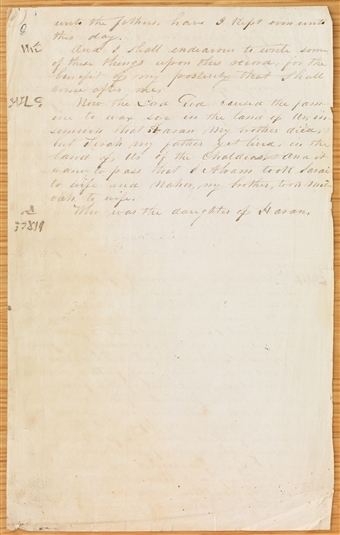 unto the fathers, have I kept even unto
this day.
And I shall endeavor to write some
of these things upon this record, for the
benefit of my posterity that shall
come after me.
Now the Lord God caused the fam-
ine to wax sore in the land of Ur, in
somuch that Haran my brother died,
but Terah my father yet lived, in the
land of Ur of the Chaldeas. And it
came to pass that I Abram took Sarai
to wife and Nahor, my brother, took
to wife.
Who was the daughter of Haran.